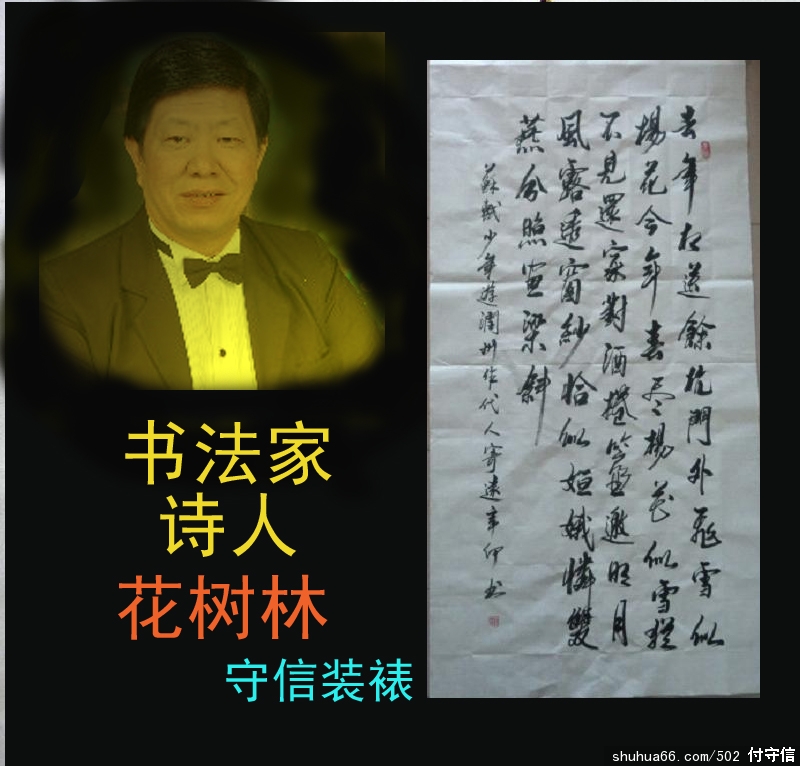 书法家
诗人
花树林
守信装裱
去年相送餘杭門外飛雪似
楊花今年春尽楊花似雪猶
不見還家對酒捲簾邀明月
風露透窗紗恰似姮娥憐雙
燕分照画梁斜
蘇軾少年遊潤州作代人寄遠辛卯书
shuhua66.com/502 付守信